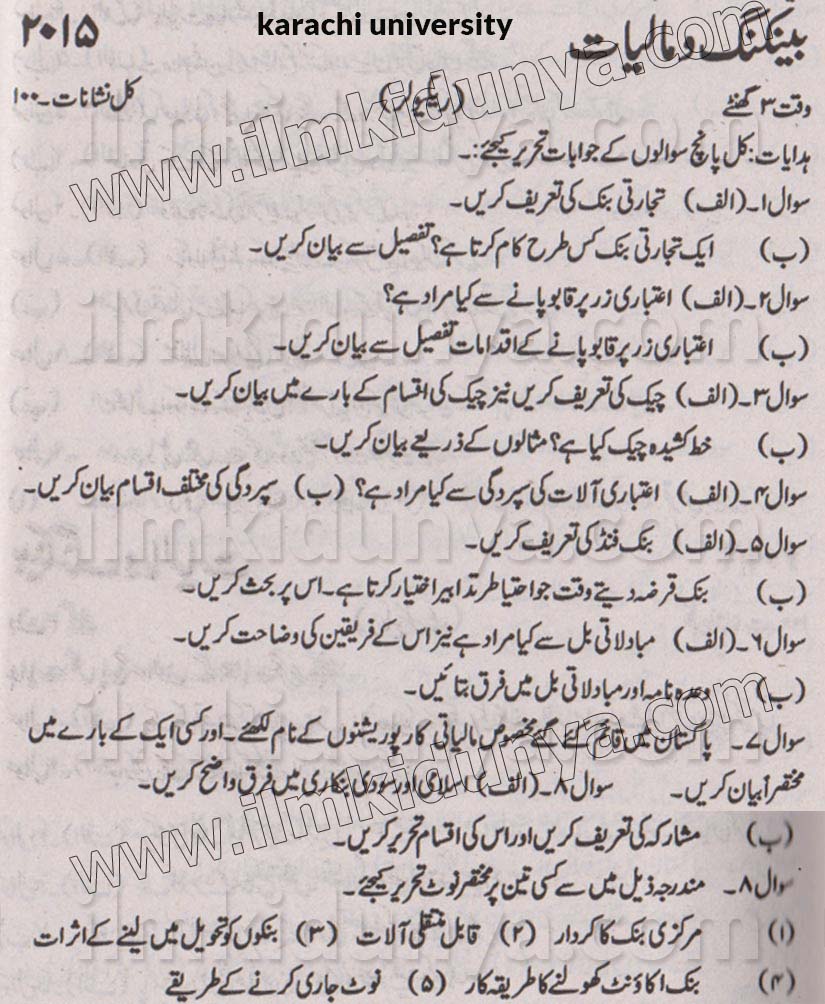 karachi university
بینکنگ و مالیات
۲۰۱۵
وقت ۳ گھنٹے (ریگولر) کل نشانات۔۱۰۰
ہدایات: کل پانچ سوالوں کے جوابات تحریر کیجئے:۔
سوال ۱۔(الف) تجارتی بنک کی تعریف کریں۔
(ب) ایک تجارتی بنک کس طرح کام کرتا ہے؟ تفصیل سے بیان کریں۔
سوال ۲۔(الف) اعتباری زر پر قابو پانے سے کیا مراد ہے؟
(ب) اعتباری زر پر قابو پانے کے اقدامات تفصیل سے بیان کریں۔
سوال ۳۔(الف) چیک کی تعریف کریں نیز چیک کی اقسام کے بارے میں بیان کریں۔
(ب) خط کشیدہ چیک کیا ہے؟ مثالوں کے ذریعے بیان کریں۔
سوال ۴۔(الف) اعتباری آلات کی سپردگی سے کیا مراد ہے؟ (ب) سپردگی کی مختلف اقسام بیان کریں۔
سوال ۵۔(الف) بنک فنڈ کی تعریف کریں۔
(ب) بنک قرضہ دیتے وقت جو احتیاط رتدابیر اختیار کرتا ہے۔ اس پر بحث کریں۔
سوال ۶۔(الف) مبادلاتی بل سے کیا مراد ہے نیز اس کے فریقین کی وضاحت کریں۔
(ب) وعدہ نامہ اور مبادلاتی بل میں فرق بتائیں۔
سوال ۷۔ پاکستان میں قائم کئے گئے مخصوص مالیاتی کارپوریشنوں کے نام لکھئے۔ اور کسی ایک کے بارے میں
مختصراً بیان کریں۔ سوال ۸۔(الف) اسلامی اور سودی بنکاری میں فرق واضح کریں۔
(ب) مشارکہ کی تعریف کریں اور اس کی اقسام تحریر کریں۔
سوال ۸۔ مندرجہ ذیل میں سے کسی تین پر مختصر نوٹ تحریر کیجئے۔
(۱) مرکزی بنک کا کردار (۲) قابل منتقلی آلات (۳) بنکوں کو تحویل میں لینے کے اثرات
(۴) بنک اکاؤنٹ کھولنے کا طریقہ کار (۵) نوٹ جاری کرنے کے طریقے
www.ilmkidunya.com
ilmkidunya.com
ilmkidunya.com
ilmkidunya.com
ilmkidunya.com
ilmkidunya.com
www.ilmkidunya.com
ilmkidunya.com